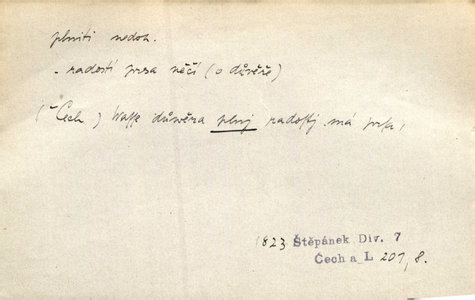 plniti nedok.
- radostí prsa něčí (o důvěře)
(Čech) Wasse důwěra plnj radostj má prsa,
1823 Štěpánek Div. 7
Čech a L 201, 8.